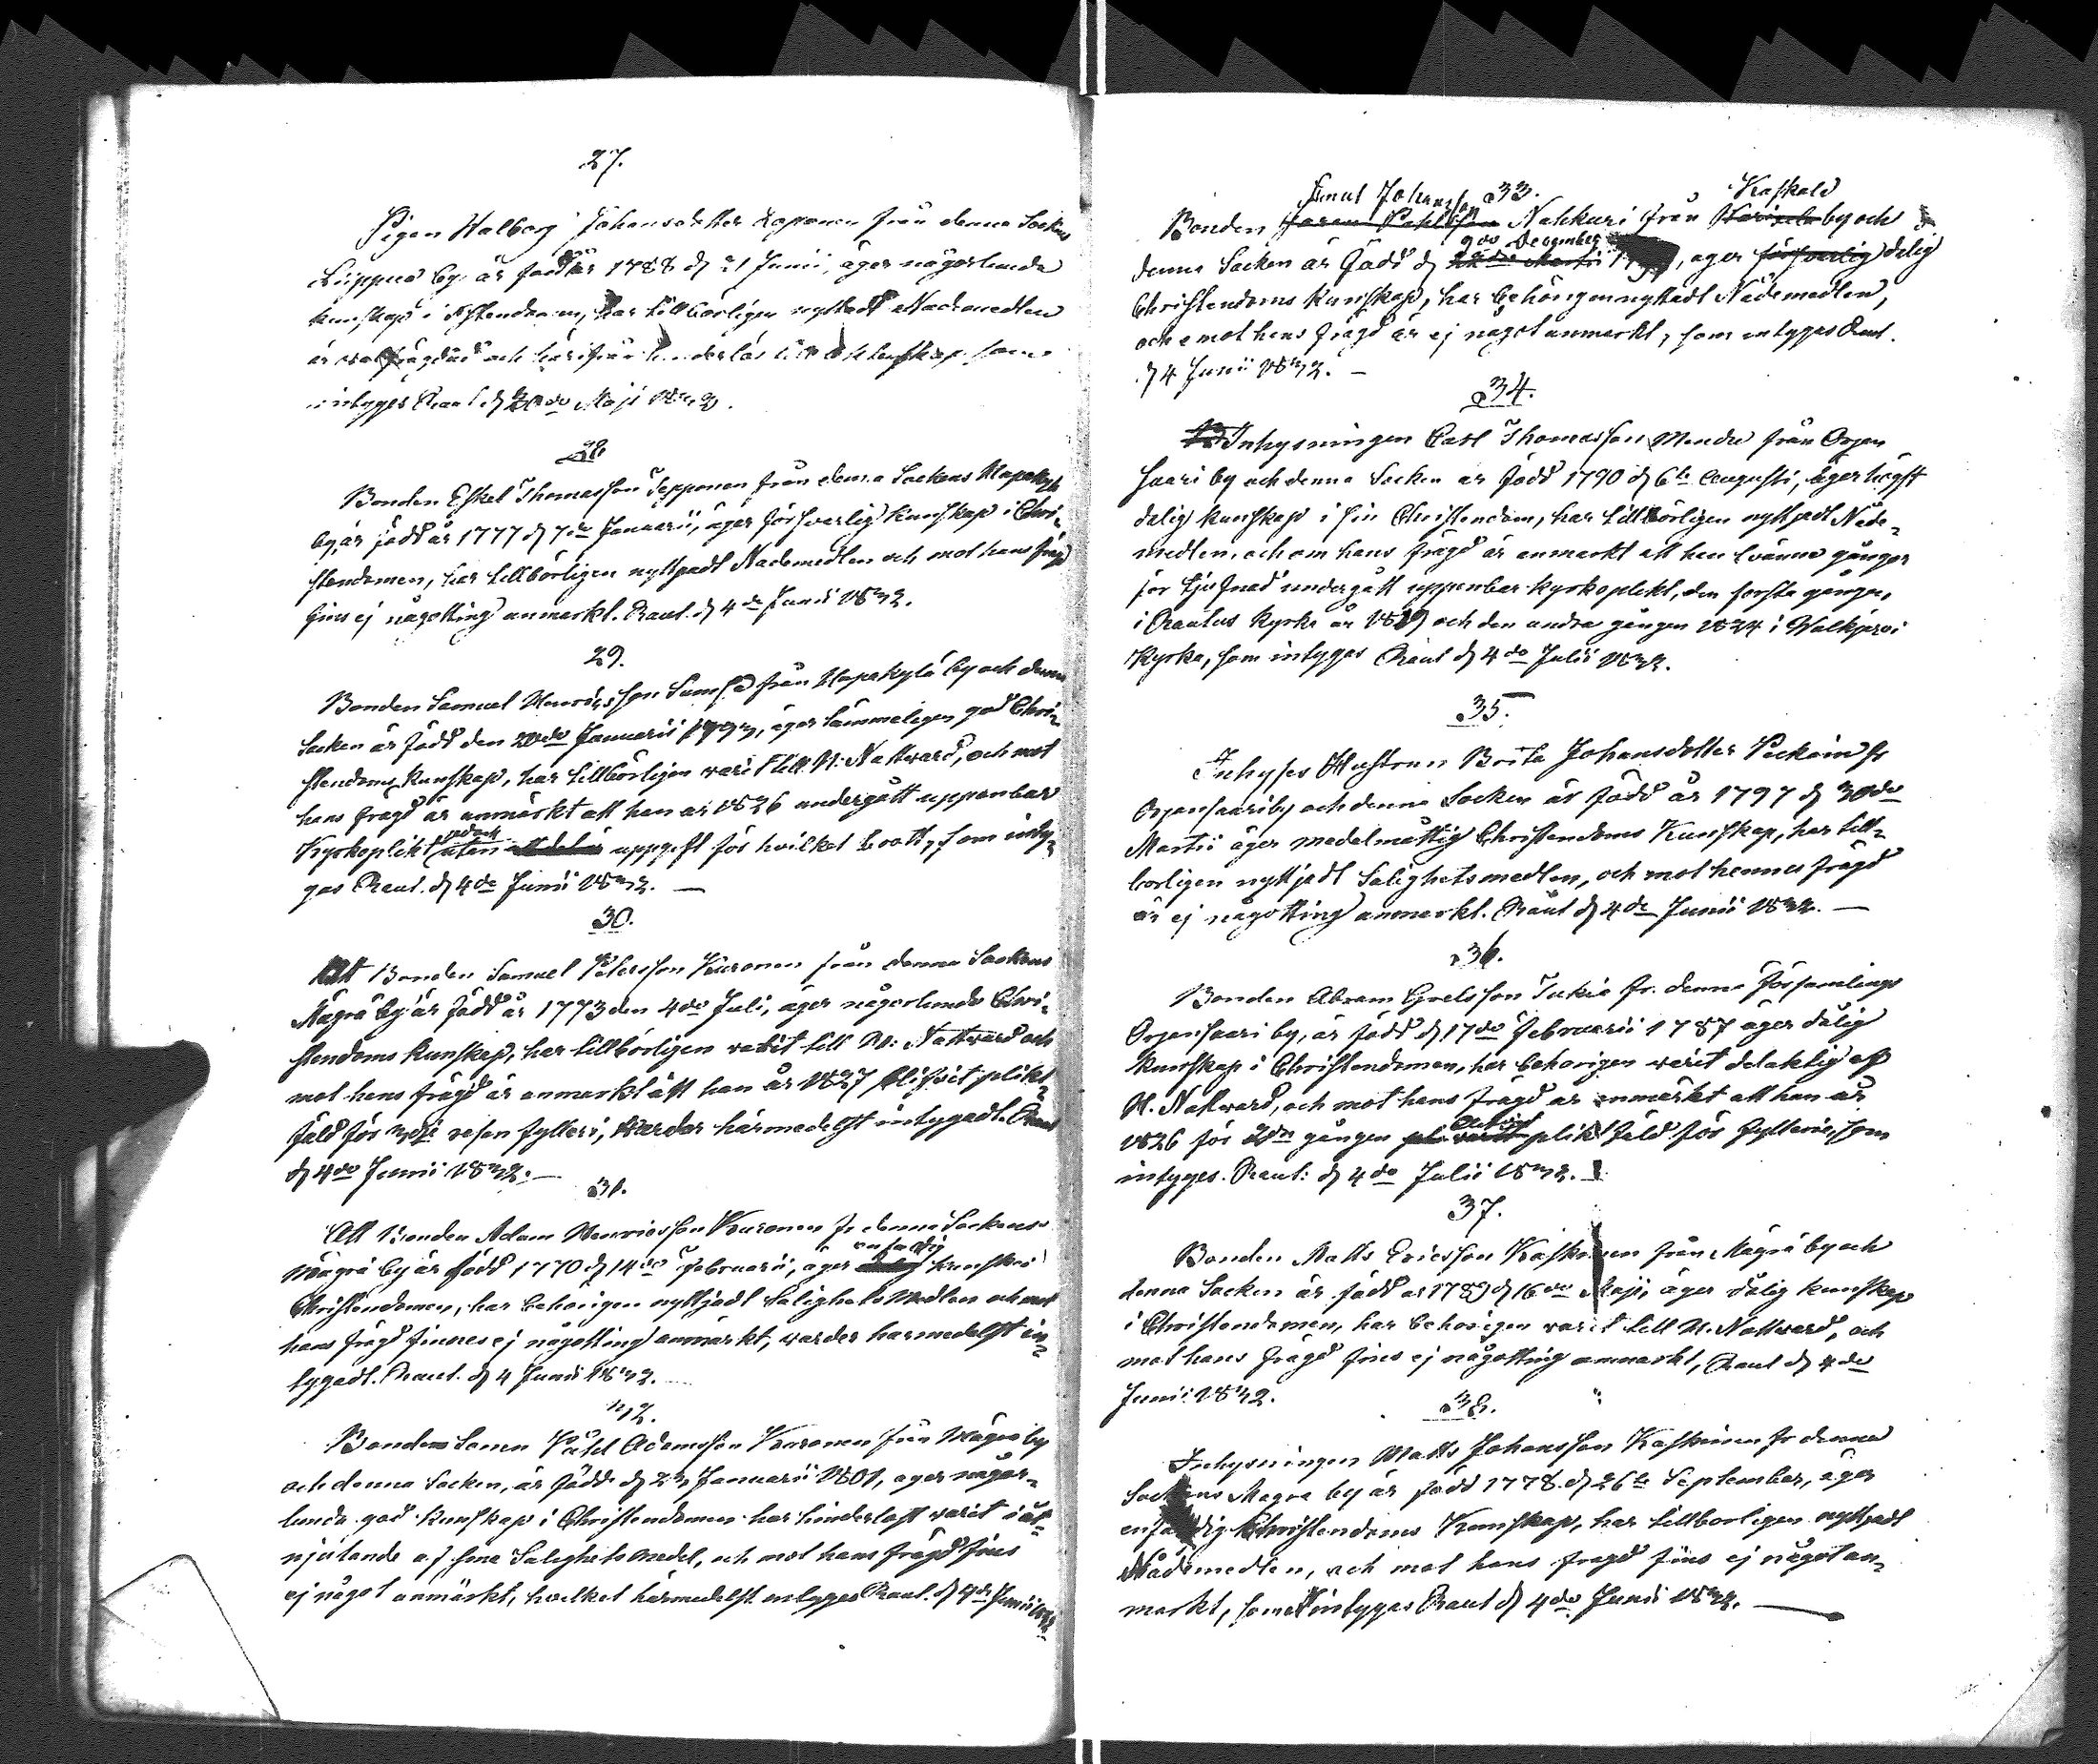 27.
Pigan Walborg Johansdotter Loponen från denna Sockens
Lüippno by är född år 1788 d. 21 Junii, äger någorlunda
kunskap i Christendomen, har tillbörligen nyttjadt Nademedlen
är wälfrägdad och härifrån hinderlös till ächtenskap som
intyges Raut. d. 20de Maji 1832.
28.
Bonden Eskel Thomasson Tepponen från denna Sockens Hapakylä
by, är född år 1777 d. 7de Januarii, äger försvarlig kunskap i Chri-
stendomen, har tillbörligen nyttjadt Nademedlen och mot hans frägd
fins ej någotting anmerkt. Raut. d. 4de Junii 1832.
29.
Bonden Samuel Henricsson från Hapakylä by och denna
Socken är född den 20de Januarii, äger tämmeligen god Chri-
stendoms kunskap, har tillbörligen warit till H: Nattward, och mot
hans frägd är anmärkt att han år 1826 undergått uppenbar
Kyrkoplikt utan uppgift för hvilket brott, som inty-
gas Raut. d. 4de Junii 1832. —
30.
Att Bonden Samuel Petersson Kuronen från denna Sockens
Mägrä by är född år 1773 den 4de Juli, äger någorlunda Chri-
stendoms kunskap, har tillbörligen varit till H: Nattward och
mot hans frägd är anmärkt att han år 1827 blifvit plikt-
fäld för 3dje resan fylleri, warder härmedelst intygadt. Raut
d. 4de Junii 1832. —
31.
Att Bonden Adam Henricsson Kuronen fr denna Sockens
enfaldig
Mägrä by är född 1770 d. 14de Februarii, äger kunskap i
Christendomen, har behörigen nyttjadt Salighets Medlen och mot
hans frägd finnes ej någotting anmärkt, warder harmedelst in-
tygadt. Raut. d. 4 Junii 1832.
32.
Bonde Sonen Påhl Adamsson Kuronen från Mägrä by
och denna Socken, är född d. 23 Januarii 1801, äger någor-
lunda god kunskap i Christendomen har hinderlöst warit i åt-
njutande af sina Salighets medel, och mot hans frägd fins
ej något anmärkt, hvilket härmedelst intyges Raut. d. 4de Junii 1832
33.
Knut Johansson Kaskala
Bonden Nakkari från by och
9de December
denna Socken är född d., äger försvarlig dålig
Christendoms kunskap, har behörigen nyttadt Nådemedlen,
och emot hans frägd är ej något anmärkt, som intyges Raut.
d. 4 Junii 1832. —
34.
Inhysningen Carl Thomasson från Orjan
saari by och denna Socken är född 1790 d. 6te Augusti, äger högst
dålig kunskap i sin Christendom, har tillbörligen nyttjadt Nåde-
medlen, och om hans frägd är anmärkt att han tvänne gånger
för tjufnad undergått uppenbar kyrkoplikt, den första gången
i Rautus Kyrka år 1819 och den andra gången 1824 i Walkjervi
Kyrka, som intyges Raut d. 4de Julii 1832.
35.
Inhyses Hustrun Brita Johansdotter Peckain fr
Orjansaari by och denna Socken är född år 1797 d. 30de
Martii äger medelmåttig Christendoms Kunskap, har till-
börligen nyttjadt Salighetsmedlen, och mot hennes frägd
är ej någotting anmärkt. Raut d. 4de Junii 1832. —
36.
Bonden Abram Grelsson Tukia fr. denna församlings
Orjansaari by, är född d. 17de Februarii 1787 äger dålig
kunskap i Christendomen, har behörigen warit delaktig af
H. Nattward, och mot hans frägd är anmärkt att han år
blifvit
1826 för 2dra gången pliktfäld för fylleri, som
intyges. Raut: d. 4de Julii 1832.
37.
Bonden Matts Ericsson Kaskinen från Mägrä by och
denna Socken är född år 1789 d. 16de Maji, äger dålig kunskap
i Christendomen, har behörigen warit till H. Nattward, och
mot hans frägd fins ej någotting anmärkt, Raut d. 4de
Junii 1832.
38.
Inhysningen Matts Johansson Kaskinen fr denna
Sockens Mägrä by är född 1778 d. 26te September, äger
enfaldig Christendoms Kunskap, har tillbörligen nyttjadt
Nådemedlen, och mot hans frägd fins ej något an-
märkt, som intyges Raut d. 4de Junii 1832. —